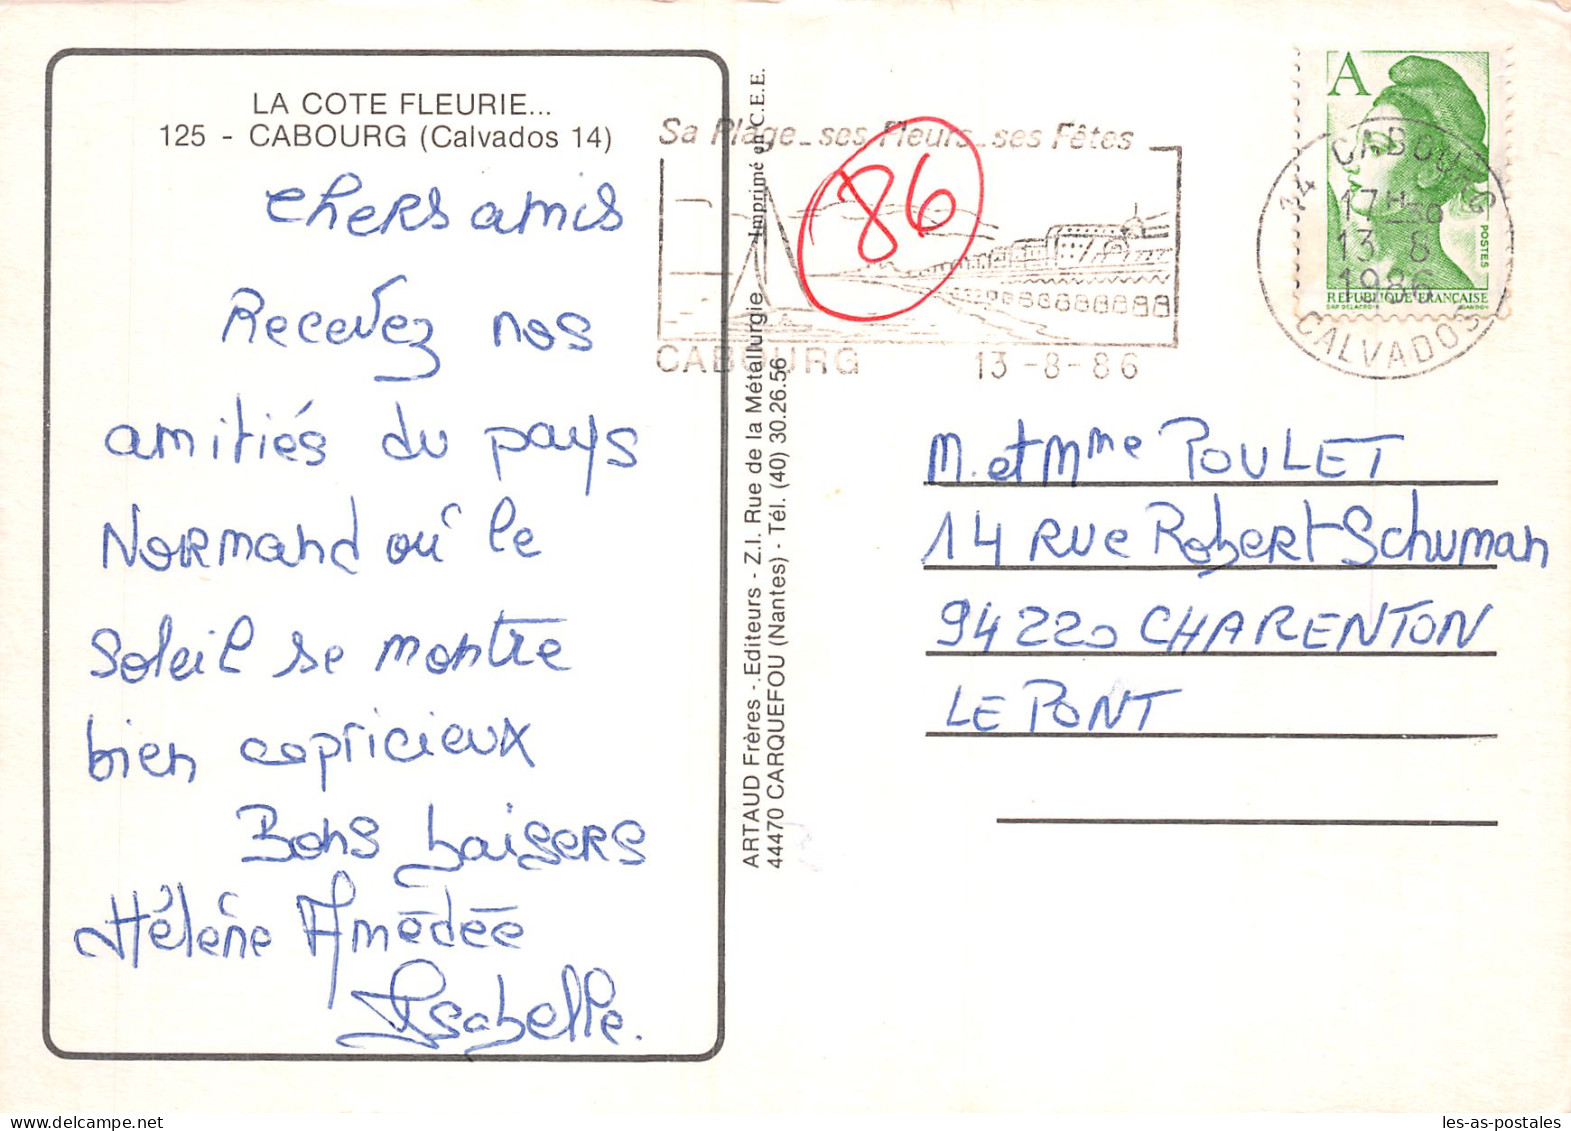 LA COTE FLEURIE...
125 - CABOURG (Calvados 14)
Chers amis
Recevez nos
amitiés du pays
Normand où le
soleil se montre
bien capricieux
Bons baisers
Hélène Amédée
Isabelle.
ARTAUD Frères - Editeurs - Z.I. Rue de la Métallurgie Imprimé en C.E.E.
44470 CARQUEFOU (Nantes) - Tél. (40) 30.26.56
Sa Plage_ses Fleurs_ses Fêtes
86
CABOURG 13-8-86
A
POSTES
REPUBLIQUE FRANÇAISE
DAP DELACROIX GANDON
14 CABOURG
17H
13 8
1986
CALVADOS
M. et Mme POULET
14 Rue Robert Schuman
94220 CHARENTON
LE PONT
les-as-postales